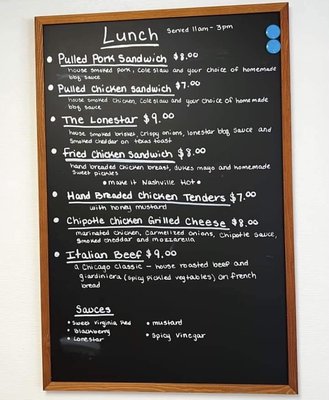 Lunch Served 11am - 3pm
• Pulled Pork Sandwich $8.00
house smoked pork, cole slaw and your choice of homemade
bbq sauce
• Pulled Chicken Sandwich $7.00
house smoked chicken, cole slaw and your choice of homemade
bbq sauce
• The Lonestar $9.00
house smoked brisket, crispy onions, lonestar bbq sauce and
smoked cheddar on texas toast
• Fried Chicken Sandwich $8.00
hand breaded chicken breast, dukes mayo and homemade
sweet pickles
• make it Nashville Hot •
• Hand Breaded Chicken Tenders $7.00
with honey mustard
• Chipotle Chicken Grilled Cheese $8.00
marinated chicken, carmelized onions, chipotle sauce,
smoked cheddar and mozzarella
• Italian Beef $9.00
a Chicago Classic - house roasted beef and
giardiniera (spicy pickled vegetables) on french
bread
Sauces
• Sweet Virginia Red • mustard
• Blackberry
• Lonestar • Spicy Vinegar